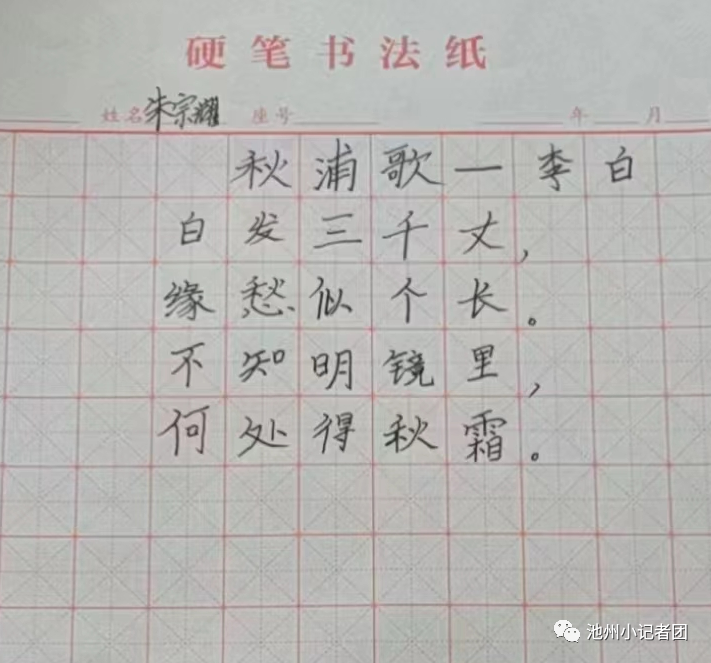 硬笔书法纸
姓名朱宗耀 座号 年 月
秋浦歌一李白
白发三千丈，
缘愁似个长。
不知明镜里，
何处得秋霜。
池州小记者团